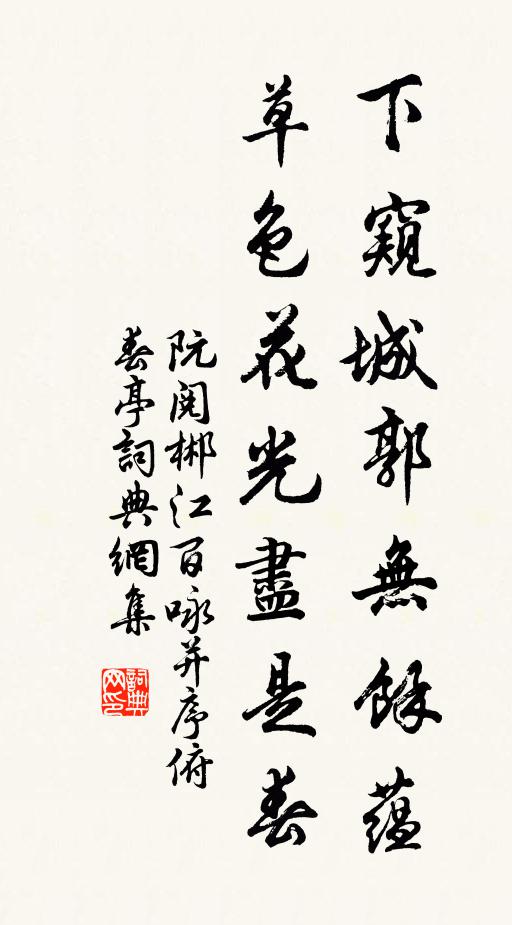 下窺城郭無餘蘊
草色花光盡是春
阮閱郴江百咏并序俯
春亭詞典網集
詞典網印